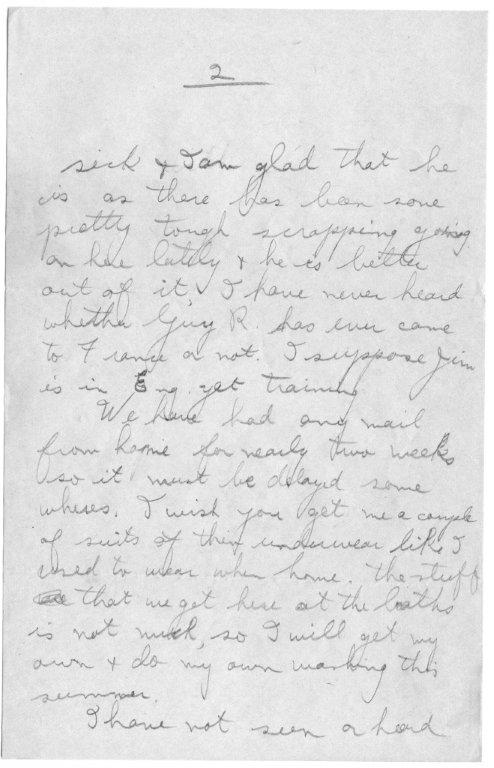 2
sick & I am glad that he
is as there has been some
pretty tough scrapping going
on here lately & he is better
out of it, I have never heard
whether Guy R. has ever came
to France or not. I suppose Jim
is in Eng. yet training
We have had any mail
from home for nearly two weeks
so it must be delayd some
wheres. I wish you get me a couple
of suits of thin underwear like I
used to wear when home. the stuff
that we get here at the baths
is not much, so I will get my
own & do my own washing this
summer.
I have not seen or heard